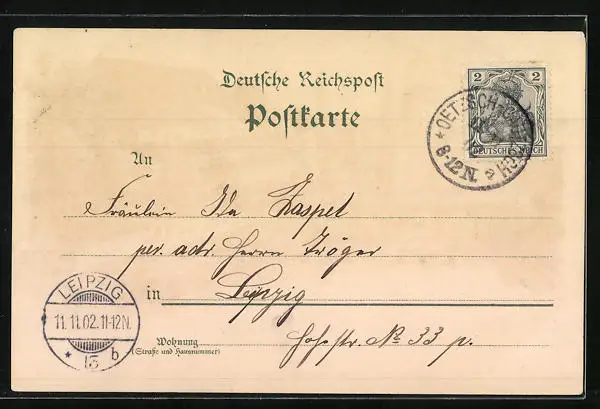 Deutsche Reichspost
Postkarte
2 2
DEUTSCHES REICH
OETZSCH
8-12 N.
An
Fräulein Ida Zaspel
per. adr. Herrn Tröger
in Leipzig
LEIPZIG
11.11.02.11-12N.
* 13 b
Wohnung
(Straße und Hausnummer)
Hohestr. No 33 p.